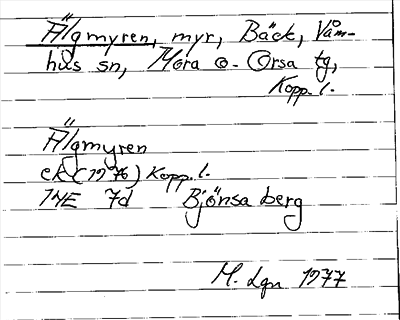 Älgmyren, myr, Bäck, Våm-
hus sn, Mora o. Orsa tg,
Kopp. l.
Älgmyren
ek (1976) Kopp. l.
14E 7d Bjönsa berg
M. Lgn 1977